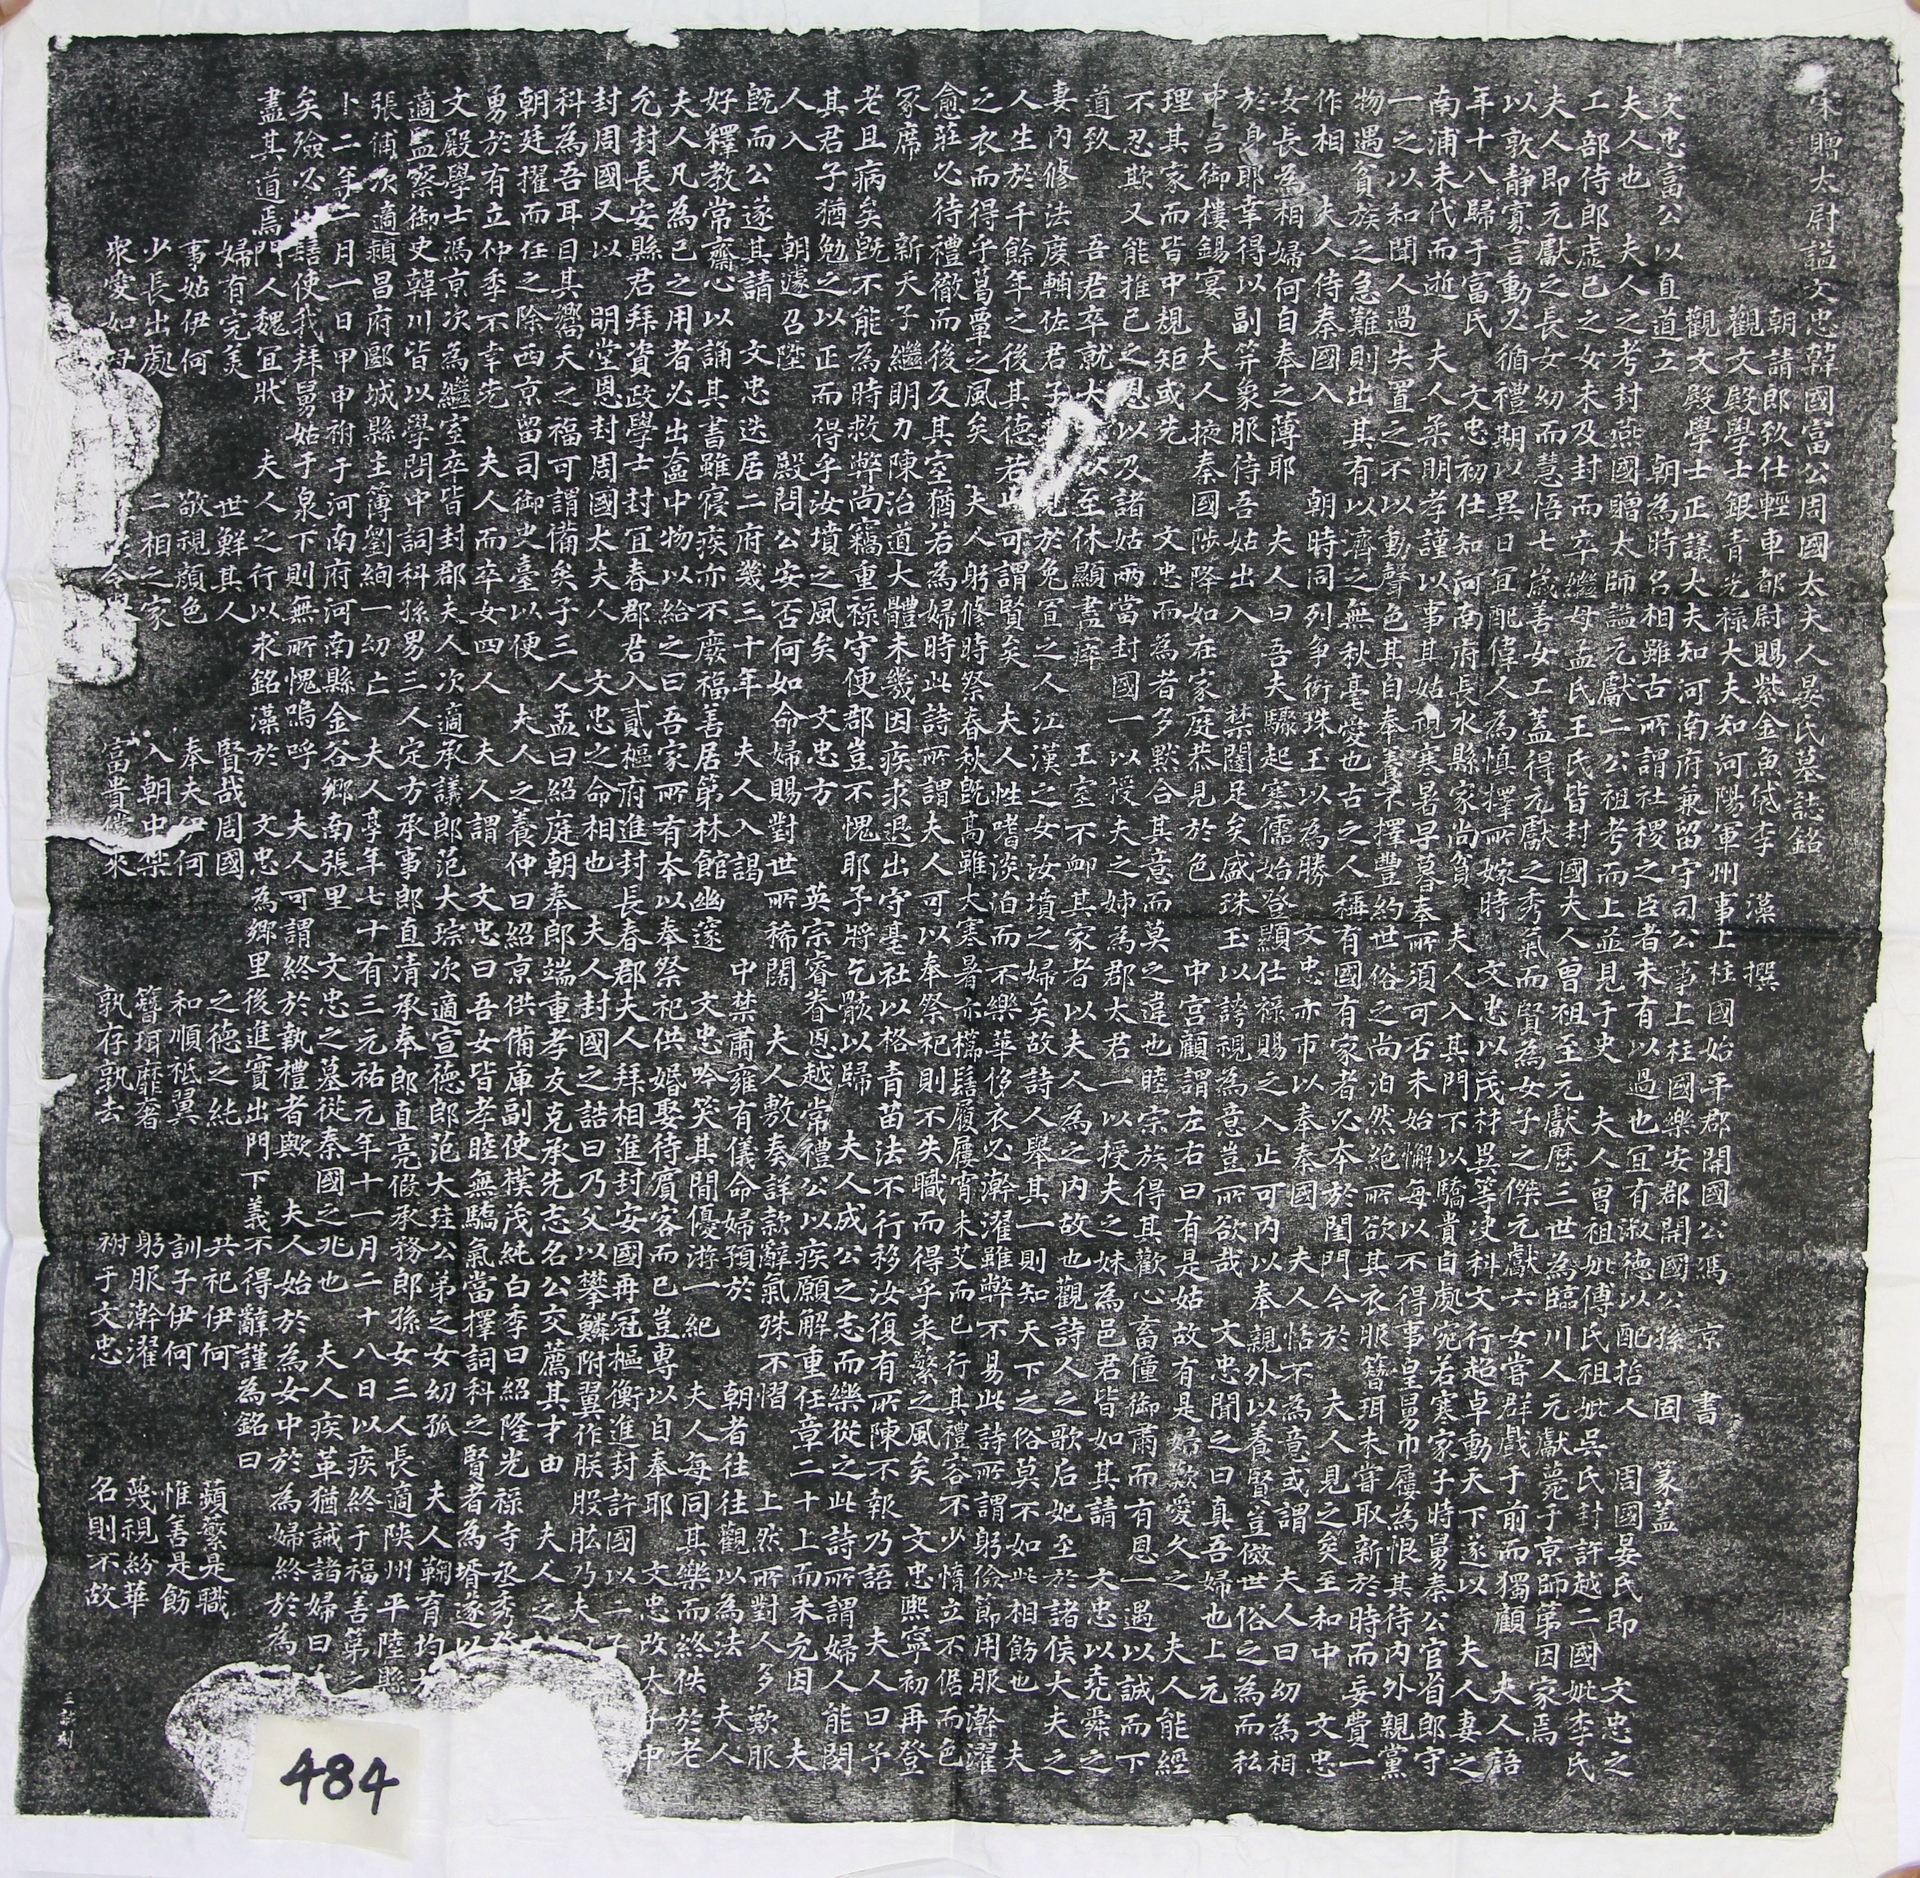 宋贈大尉謚文忠韓國富公周國太夫人晏氏墓誌銘
朝請郎致仕輕車都尉賜紫金魚帒李 藻 撰
觀文殿學士銀青光祿大夫知河陽軍州事上柱國始平郡開國公馮 京 書
觀文殿學士正議大夫知河南府兼留守司公事上柱國樂安郡開國公孫 固 篆蓋
文忠富公以直道立 朝為時名相雖古所謂社稷之臣者未有以過也宜有淑德以配悊人 周國晏氏即 文忠之
夫人也 夫人之考封燕國贈太師謚元獻二公祖考而上並見于史 夫人曾祖妣傅氏祖妣吳氏封許越二國妣李氏
工部侍郎虛己之女未及封而卒繼母孟氏王氏皆封國夫人曾祖至元獻歷三世為臨川人元獻薨于京師第因家焉
夫人即元獻之長女幼而慧悟七歲善女工蓋得元獻之秀氣而賢為女子之傑元獻六女嘗群戲于前而獨顧 夫人語
以敦靜寡言動必循禮期以異日宜配偉人為慎擇所嫁時 文忠以茂材異等決科文行超卓動天下遂以 夫人妻之
年十八歸于富氏 文忠初仕知河南府長水縣家尚貧 夫人入其門不以驕貴自處宛若寒家子時舅秦公官省郎守
南浦未代而逝 夫人柔明孝謹以事其姑視寒暑早暮奉所須可否未始懈每以不得事皇舅巾屨為恨其待內外親黨
一之以和聞人過失置之不以動聲色其自奉養不擇豐約世俗之尚泊然絕所欲其衣服簪珥未嘗取新於時而妄費一
物遇貧族之急難則出其有以濟之無秋毫愛也古之人稱有國有家者必本於閨門今於 夫人見之矣至和中 文忠
作相 夫人侍秦國入 朝時同列爭衒珠玉以為勝 文忠亦市以奉秦國 夫人恬不為意或謂 夫人曰幼為相
女長為相婦何自奉之薄耶 夫人曰吾夫驟起寒儒始登顯仕祿賜之入止可內以奉親外以養賢豈倣世俗之為而私
於身耶幸得以副笄象服侍吾姑出入 禁闥足矣盛珠玉以誇視為意豈所欲哉 文忠聞之曰真吾婦也上元
中宮御樓錫宴 夫人掖秦國陟降如在家庭恭見於色 中宮顧謂左右曰有是姑故有是婦歎愛久之 夫人能經
理其家而皆中規矩或先 文忠而為者多默合其意而莫之違也睦宗族得其歡心畜僮御肅而有恩一遇以誠而下
不忍欺又能推己之恩以及諸姑兩當封國一以授夫之姊為郡太君一以授夫之妹為邑君皆如其請 文忠以堯舜之
道致 吾君卒就大 以至休顯盡瘁 王室不卹其家者以夫人為之內故也觀詩人之歌后妃至於諸侯大夫之
妻內修法度輔佐君子 見於兔罝之人江漢之女汝墳之婦矣故詩人舉其一則知天下之俗莫不如此相飭也 夫
人生於千餘年之後其德若此可謂賢矣 夫人性嗜淡泊而不樂華侈衣必澣濯雖弊不易此詩所謂躬儉節用服澣濯
之衣而得乎葛覃之風矣 夫人躬修時祭春秋既高雖大寒暑亦櫛縰履屨宵未艾而已行其禮容不少惰立不倨而色
愈莊必待禮徹而後反其室猶若為婦時此詩所謂夫人可以奉祭祀則不失職而得乎采蘩之風矣 文忠熙寧初再登
冢席 新天子繼明力陳治道大體未幾因疾求退出守亳社以格青苗法不行移汝復有所陳不報乃語 夫人曰予
老且病矣既不能為時救弊尚竊重祿守便郡豈不愧耶予將乞骸以歸 夫人成公之志而樂從之此詩所謂婦人能閔
其君子猶勉之以正而得乎汝墳之風矣 文忠方 英宗睿眷恩越常禮公以疾願解重任章二十上而未允因 夫
人入 朝遽召陞 殿問公安否何如命婦賜對世所稀闊 夫人敷奏詳款辭氣殊不慴 上然所對人多歎服
既而公遂其請 文忠迭居二府幾三十年 夫人入謁 中禁肅雍有儀命婦預於 朝者往往觀以為法 夫人
好釋教常齋心以誦其書雖寢疾亦不廢福善居第林館幽邃 文忠吟笑其間優游一紀 夫人每同其樂而終佚於老
夫人凡為己之用者必出奩中物以給之曰吾家所有本以奉祭祀供婚娶待賓客而已豈專以自奉耶 文忠改大子中
允封長安縣君拜資政學士封宜春郡君入貳樞府進封長春郡夫人拜相進封安國再冠樞衡進封許國以二子
封周國又以 明堂恩封周國太夫人 文忠之命相也 夫人封國之誥曰乃父以攀鱗附翼作朕股肱乃夫
科為吾耳目其嚮天之福可謂備矣子三人孟曰紹庭朝奉郎端重孝友克承先志名公交薦其才由 夫人之
朝廷擢而任之除西京留司御史臺以便 夫人之養仲曰紹京供備庫副使樸茂純白季曰紹隆光祿寺丞秀
勇於有立仲季不幸先 夫人而卒女四人 夫人謂 文忠曰吾女皆孝睦無驕氣當擇詞科之賢者為壻遂以
文殿學士馮京次為繼室卒皆封郡夫人次適承議郎范大琮次適宣德郎范大珪公弟之女幼孤 夫人鞠育均
適監察御史韓川皆以學問中詞科孫男三人定方承事郎直清承奉郎直亮假承務郎孫女三人長適陝州平陸縣
張俌次適潁昌府郾城縣主簿劉絢一幼亡 夫人享年七十有三元祐元年十一月二十八日以疾終于福善第之
十二年 月一日甲申祔于河南府河南縣金谷鄉南張里 文忠之墓從秦國之兆也 夫人疾革猶誡諸婦曰
矣殮必 謹使我拜舅姑于泉下則無所愧嗚呼 夫人可謂終於執禮者歟 夫人始於為女中於為婦終於為
盡其道焉門人魏宜狀 夫人之行以求銘藻於 文忠為鄉里後進實出門下義不得辭謹為銘曰
婦有完美 世鮮其人 賢哉周國 之德之純 共祀伊何 蘋蘩是職
事姑伊何 敬視顏色 奉夫伊何 和順祗翼 訓子伊何 惟善是飭
少長出處 二相之家 入朝中禁 簪珥靡奢 躬服澣濯 蔑視紛華
眾愛如母 富貴儻來 孰存孰去 祔于文忠 名則不故